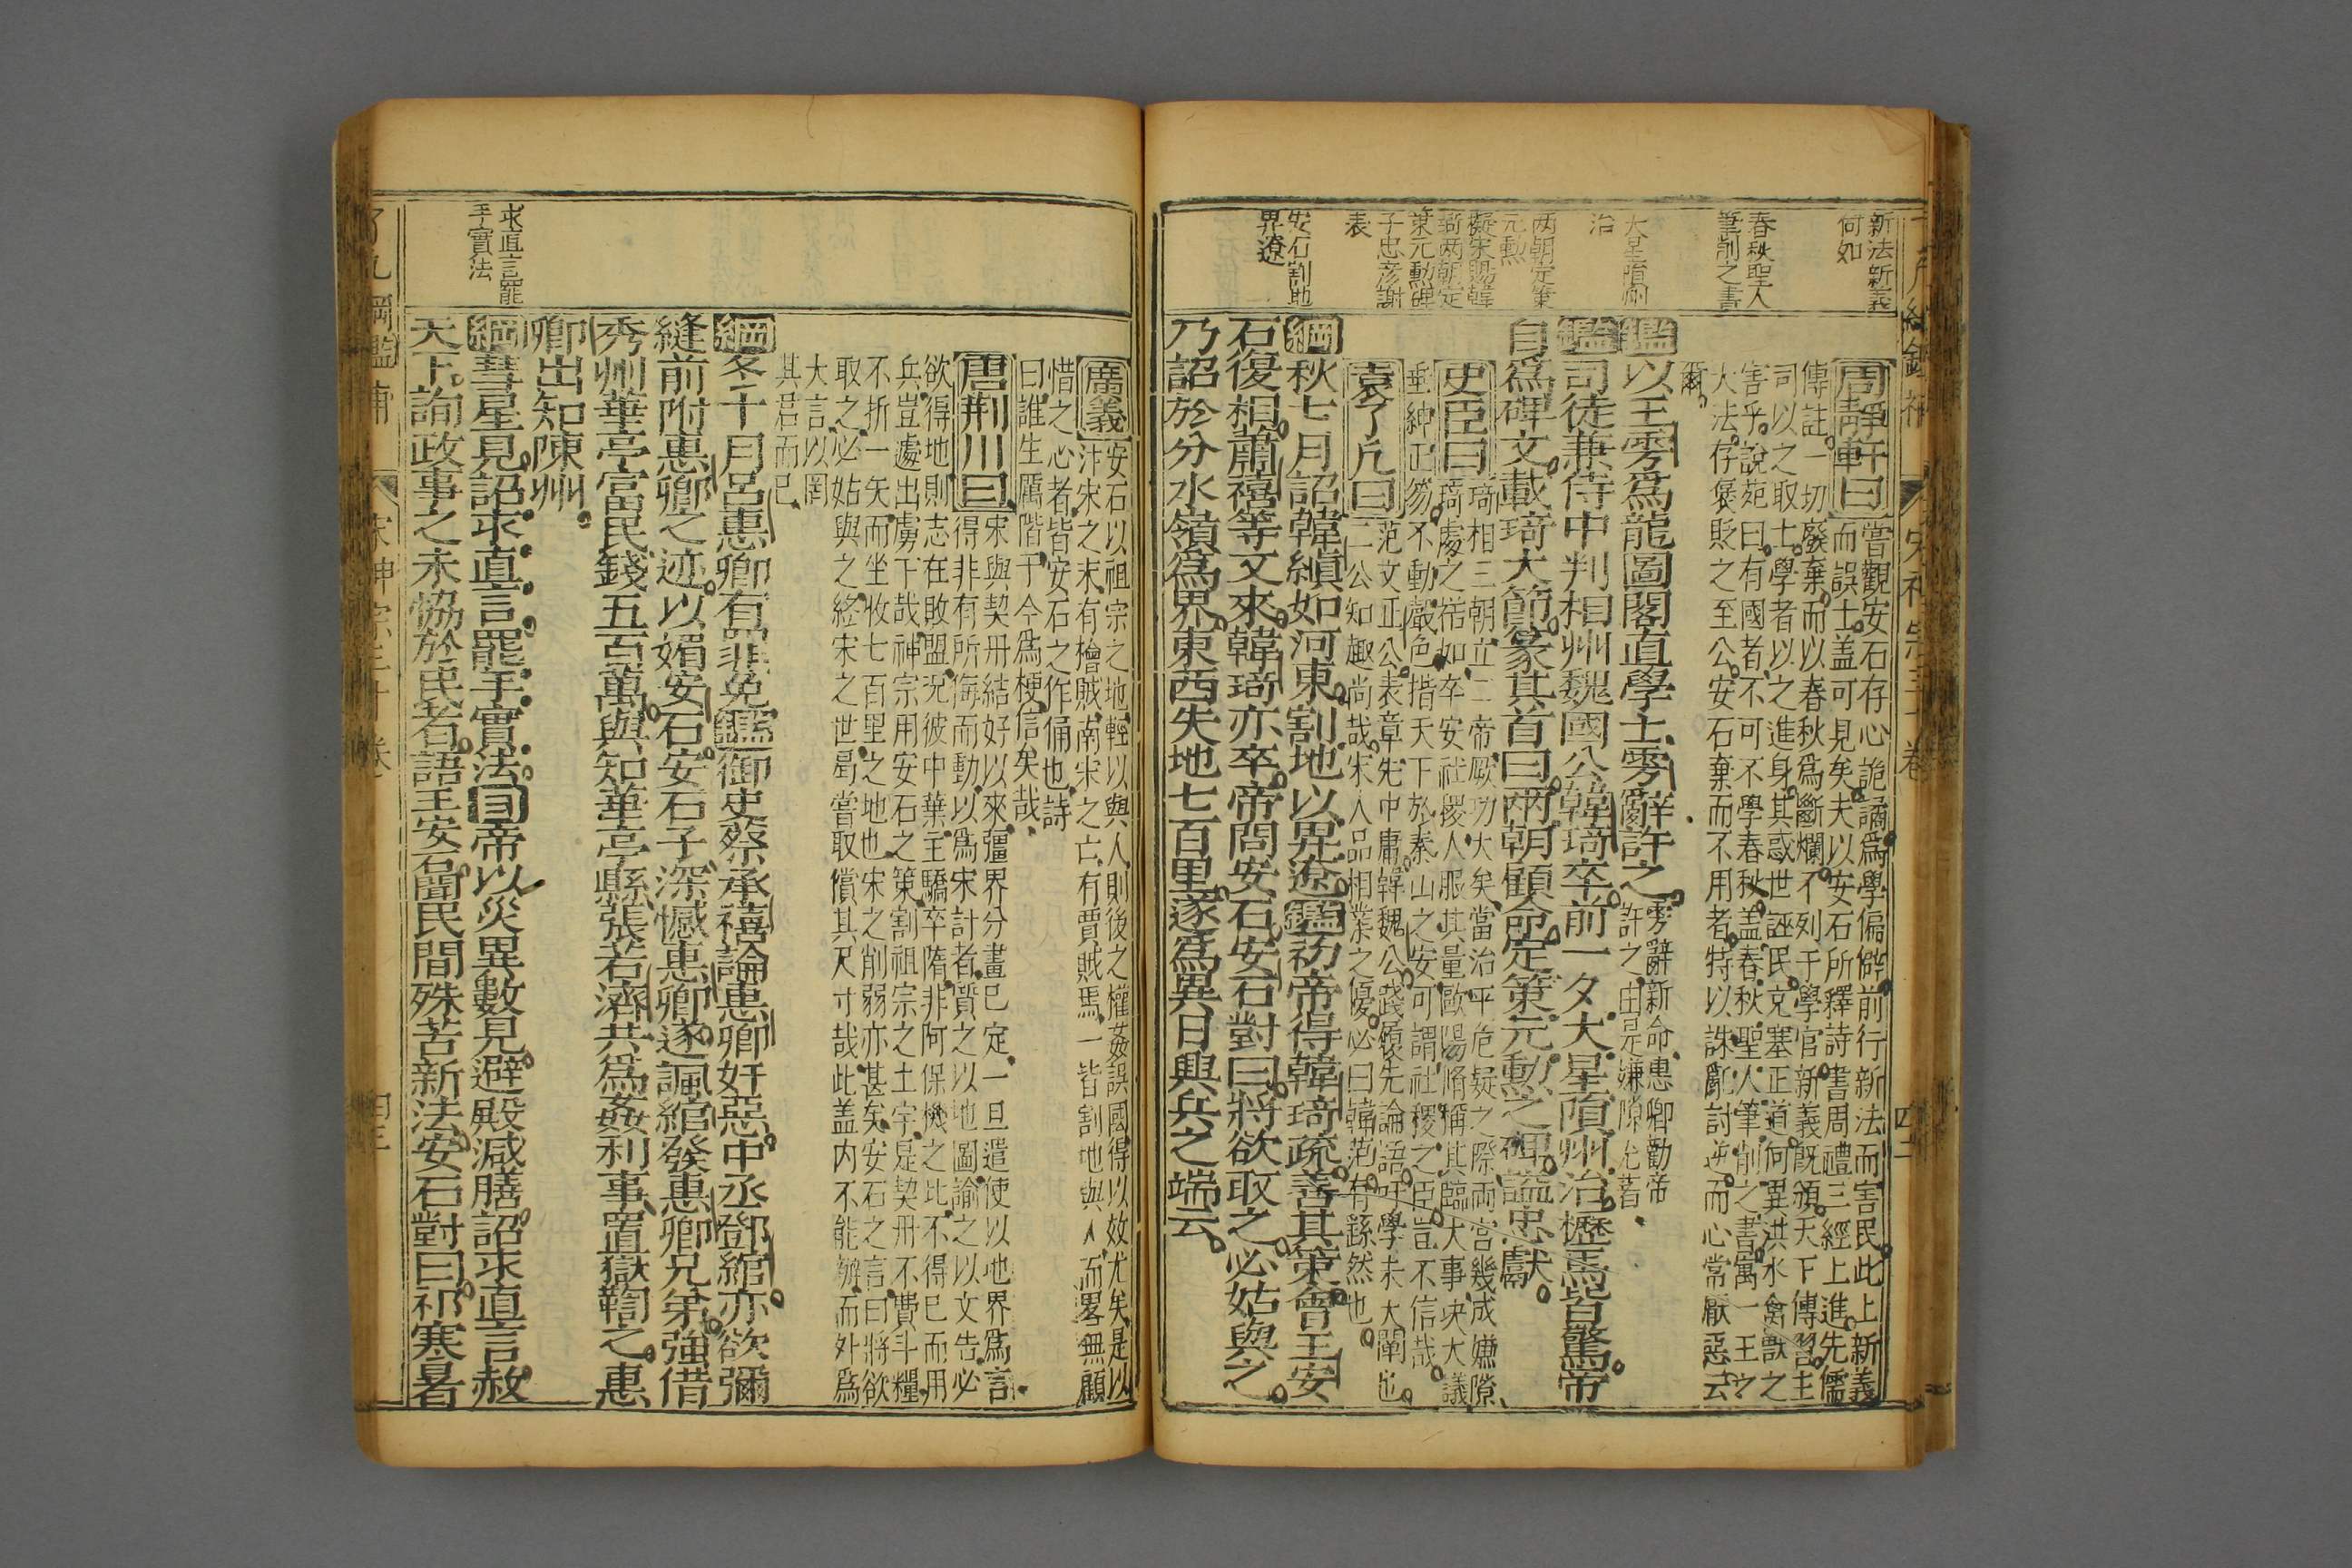 新法新義
何如
春秋聖人
筆削之書
大星隕州
治
两朝定策
元勳
擬宋賜韓
琦两朝定
策元勳碑
子忠彦謝
表
安石割地
界遼
周靜軒曰
嘗觀安石存心詭譎爲學偏僻前行新法而害民此上新義
而誤士蓋可見矣夫以安石所釋詩書周禮三經上進先儒
傳註一切廢棄而以春秋爲斷爛不列于學官新義既頒天下傳習主
司以之取士學者以之進身其惑世誣民克塞正道何異洪水禽獸之
害乎說苑曰有國者不可不學春秋蓋春秋聖人筆削之書寓一王之
大法存褒貶之至公安石棄而不用者特以誅亂討逆而心常厭惡云
爾
鑑以王雱爲龍圖閣直學士雱辭許之
雱辭新命惠卿勸帝
許之由是嫌隙尤著
鑑司徒兼侍中判相州魏國公韓琦卒前一夕大星隕州治櫪馬皆驚帝
自爲碑文載琦大節篆其首曰兩朝顧命定策元勳之碑謚忠獻
史臣曰
琦相三朝立二帝厥功大矣當治平危疑之際两宮幾成嫌隙
琦處之裕如卒安社稷人服其量歐陽脩稱其臨大事决大議
垂紳正笏不動聲色措天下於泰山之安可謂社稷之臣豈不信哉
袁了凡曰
范文正公表章先中庸韓魏公踐履先論語吁學未大闡也
二公知趣尚哉宋人品相業之優必曰韓范有繇然也
綱秋七月詔韓縝如河東割地以畀遼鑑初帝得韓琦疏善其策會王安
石復相蕭禧等又來韓琦亦卒帝問安石安石對曰將欲取之必姑與之
乃詔於分水嶺爲界東西失地七百里遂爲異日興兵之端云
求直言罷
手實法
廣義
安石以祖宗之地輕以與人則後之權姦誤國得以效尤矣是以
汴宋之末有檜賊南宋之亡有賈賊焉一皆割地與人而畧無顧
惜之心者皆安石之作俑也詩
曰誰生厲階于今爲梗信矣哉
唐荆川曰
宋與契丹結好以來疆界分畫已定一旦遣使以地界爲言
得非有所侮而動以爲宋計者質之以地圖諭之以文告必
欲得地則志在敗盟况彼中華主驕卒隋非阿保機之比不得已而用
兵豈遽出虜下哉神宗用安石之策割祖宗之土宇是契丹不費斗糧
不折一矢而坐收七百里之地也宋之削弱亦甚矣安石之言曰將欲
取之必姑與之終宋之世曷嘗取償其尺寸哉此盖内不能辦而外爲
大言以罔
其君而已
綱冬十月呂惠卿有罪免鑑御史蔡承禧論惠卿奸惡中丞鄧綰亦欲彌
縫前附惠卿之迹以媚安石安石子深憾惠卿遂諷綰發惠卿兄弟強借
秀州華亭富民錢五百萬與知華亭縣張若濟共爲姦利事置獄鞫之惠
卿出知陳州
綱彗星見詔求直言罷手實法目帝以災異數見避殿減膳詔求直言赦
天下詢政事之未協於民者語王安石聞民間殊苦新法安石對曰祁寒暑